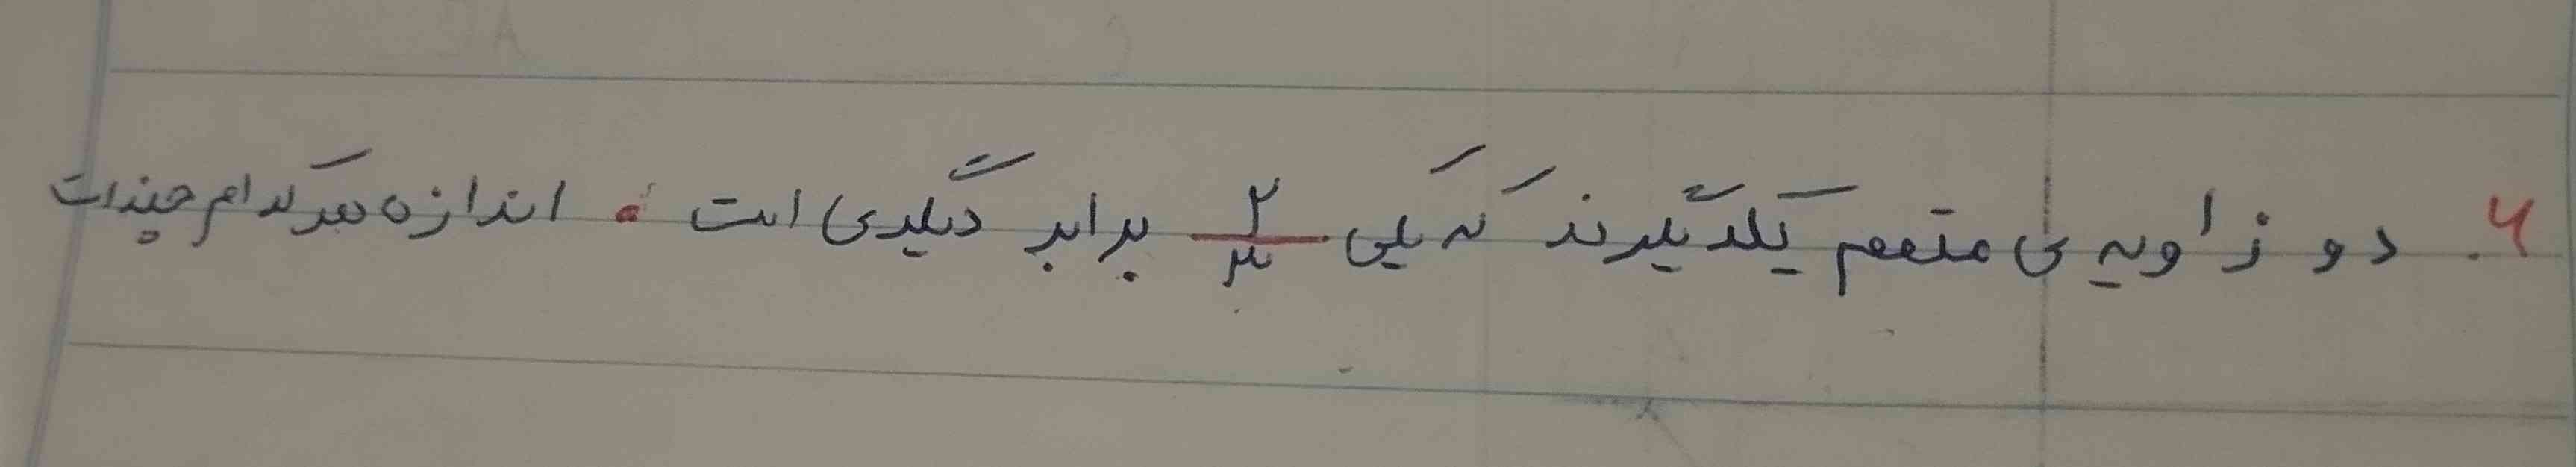 ۶. دو زاویه ی متمم یکدیگرند که یکی ۲/۳ برابر دیگری است . اندازه هر کدام چند است